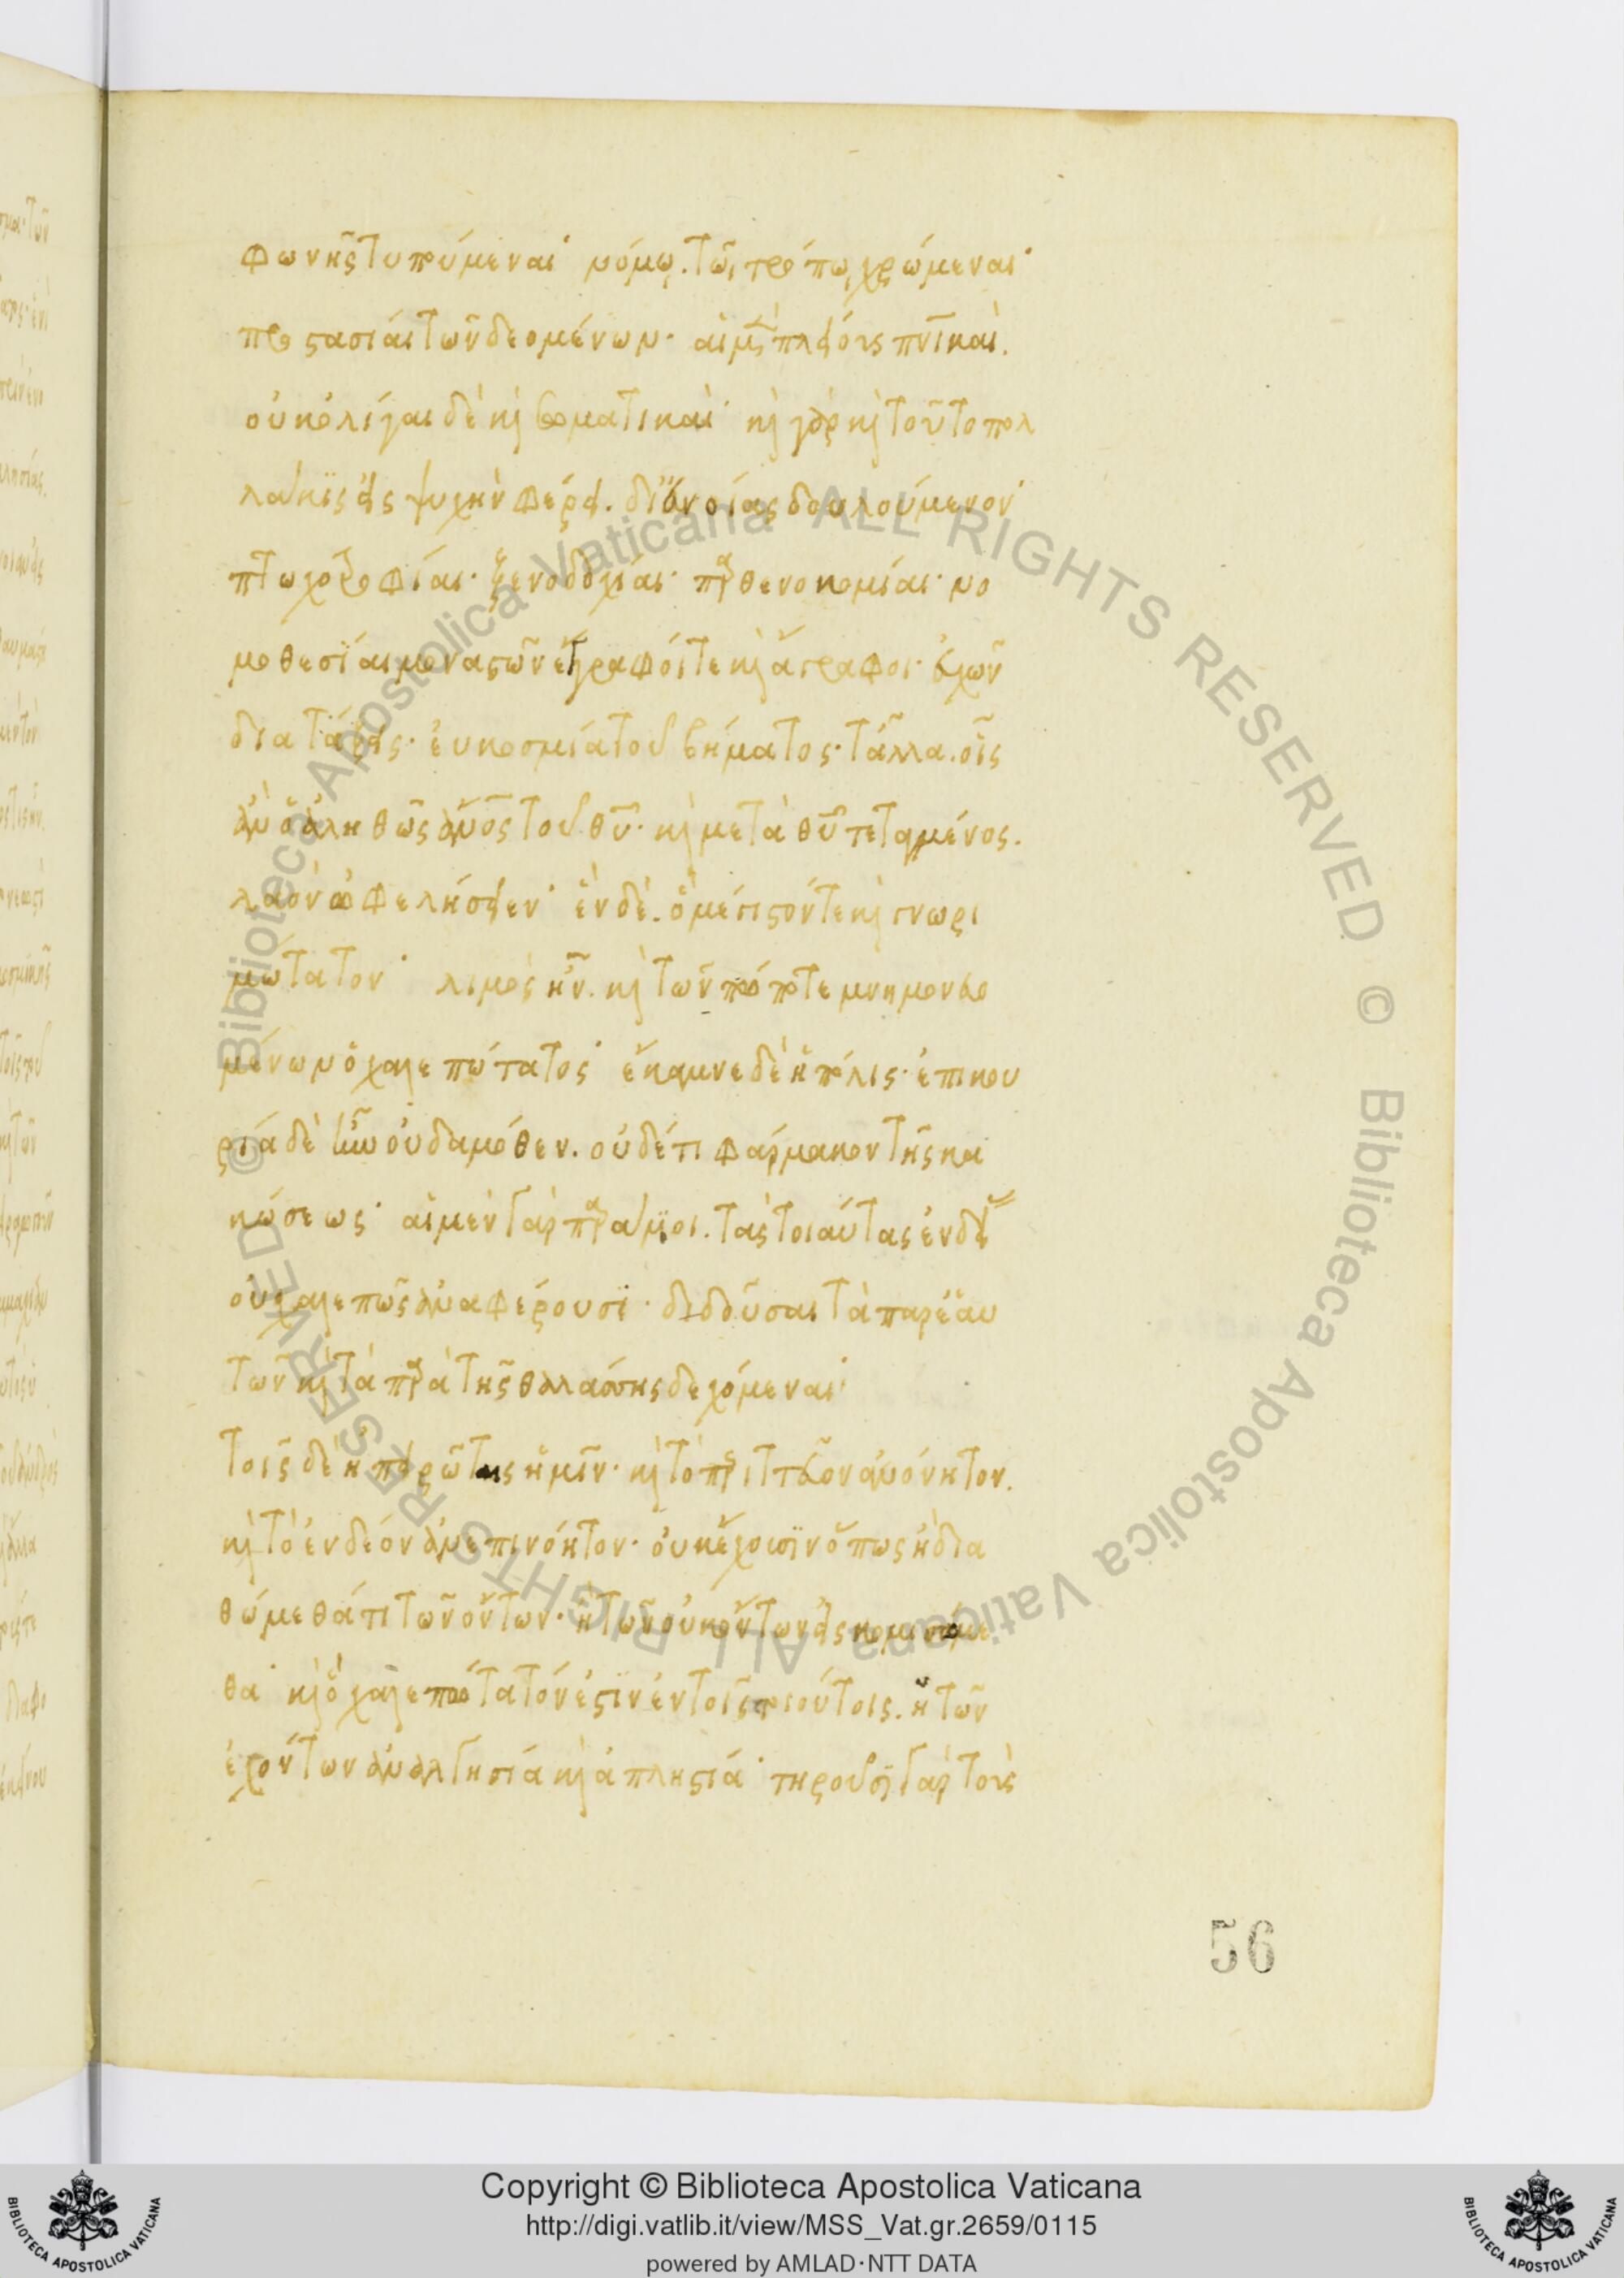 φωνῆς τυπούμεναι· νόμω, τῶ, τρόπω, χρώμεναι·
προστασίαι τῶν δεομένων· αἱ μ(ὲν) πλείους πν(ευματ)ικαὶ.
οὐκ ὀλίγαι δὲ κ(αὶ) σωματικαί· κ(αὶ) γὰρ κ(αὶ) τοῦτο πολ
λάκις εἰς ψυχὴν φέρει. δι' εὐνοίας δουλούμενον·
πτωχοτροφίαι· ξενοδοχίαι· παρθενοκομίαι· νο
μοθεσίαι μοναστῶν ἔγγραφοί τε κ(αὶ) ἄγραφοι· εὐχῶν
διατάξεις· εὐκοσμία τοῦ βήματος· τἄλλα. οἷς
ἂν ὁ ἀληθῶς ἄν(θρωπ)ος τοῦ θ(εο)ῦ· κ(αὶ) μετὰ θ(εο)ῦ τεταγμένος.
λαὸν ὠφελήσειεν· ἓν δὲ. ὃ μέγιστόν τε κ(αὶ) γνωρι
μώτατον· λιμὸς ἦν. κ(αὶ) τῶν πώποτε μνημονευο
μένων ὁ χαλεπώτατος· ἔκαμνε δὲ ἡ πόλις· ἐπικου
ρία δὲ ἦν οὐδαμόθεν. οὐδέ τι φάρμακον τῆς κα
κώσεως· αἱ μὲν γὰρ παράλιοι. τὰς τοιαύτας ἐνδείας
οὐ χαλεπῶς ἀναφέρουσι· διδοῦσαι τὰ παρ' ἑαυ
τῶν κ(αὶ) τὰ παρὰ τῆς θαλάσσης δεχόμεναι·
τοῖς δὲ ἠπειρώταις ἡμῖν· κ(αὶ) τὸ περιττεῦον ἀνόνητον.
κ(αὶ) τὸ ἐνδέον ἀνεπινόητον· οὐκ ἔχουσιν ὅπως ἢ δια
θώμεθά τι τῶν ὄντων· ἢ τῶν οὐκ ὄντων εἰσκομισώμε
θα· κ(αὶ) ὃ χαλεπώτατόν ἐστιν ἐν τοῖς τοιούτοις. ἡ τῶν
ἐχόντων ἀναλγησία κ(αὶ) ἀπληστία· τηροῦσι γὰρ τοὺς
56
Copyright © Biblioteca Apostolica Vaticana
http://digi.vatlib.it/view/MSS_Vat.gr.2659/0115
powered by AMLAD·NTT DATA